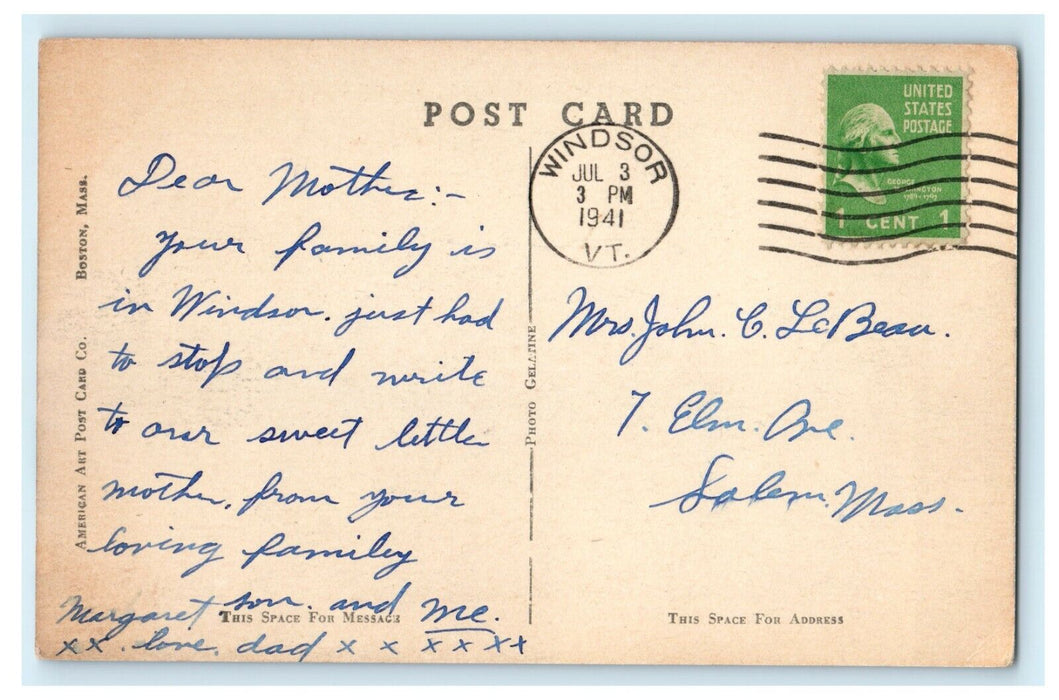 POST CARD
Dear Mother:-
Your family is
in Windsor. just had
to stop and write
to our sweet little
mother, from your
loving familey
Margaret son. and me.
xx. love. dad x x x x xx
THIS SPACE FOR MESSAGE
AMERICAN ART POST CARD CO. BOSTON, MASS.
PHOTO GELATINE
WINDSOR
JUL 3
3 PM
1941
VT.
UNITED
STATES
POSTAGE
GEORGE
WASHINGTON
1789-1797
1 CENT 1
Mrs. John. C. LeBeau.
7. Elm. Ave.
Salem. Mass.
THIS SPACE FOR ADDRESS